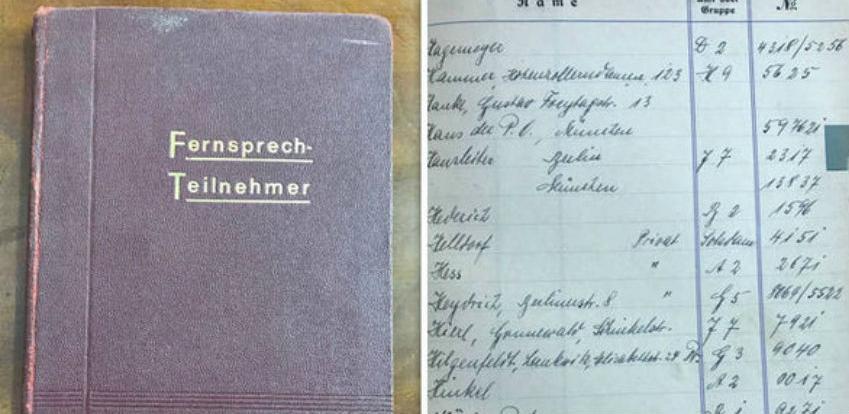 Fernsprech-
Teilnehmer
Name
Gruppe
No
Hagemeyer D 2 4318/5256
Hammer, Hohenzollerndamm 123 H 9 5625
Hanke, Gustav Freytagstr. 13
Haus der P.O., München 597621
Berlin J 7 2317
München 13837
Hederich 1596
Helldorf Privat Potsdam 4151
Hess " A 2 2671
Heydrich, Berlinerstr. 8 " G 5 /5522
Hierl, Grunewald, Schinkelstr. J 7 7921
Hilgenfeldt, Lankwitz, G 3 9040
Hinkel A 2 0017